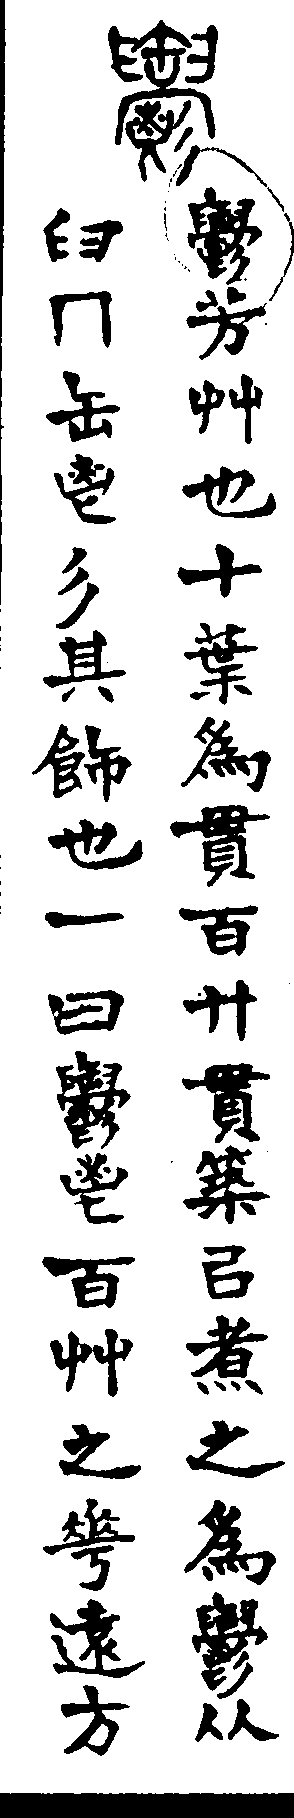 鬱
鬱芳艸也十葉為貫百廿貫築㠯煮之為鬱从
𦥑冂缶鬯彡其飾也一曰鬱鬯百艸之𠌶遠方